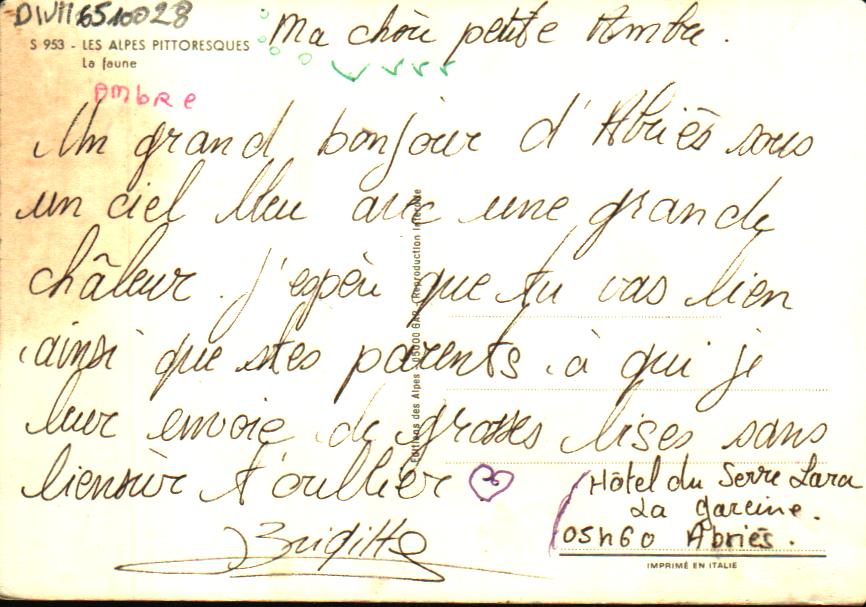 DIVII6510028
Ma chère petite Ambre.
S 953 - LES ALPES PITTORESQUES
La faune
AMBRe
Un grand bonjour d'Abriès sous
un ciel bleu avec une grande
châleur. J'espère que tu vas bien
ainsi que stes parents à qui je
leur envoie de grosses bises sans
biensûr t'oublier
Brigitte
Hôtel du Serre Lara
La garcine.
05460 Abriès.
Editions des Alpes - 05000 GAP - (Reproduction Interdite
IMPRIMÉ EN ITALIE